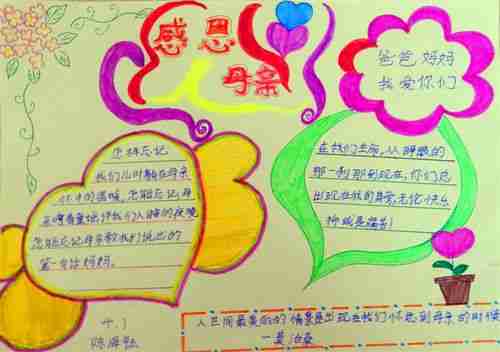 感恩
母亲
爸爸 妈妈
我爱你们
怎样忘记
我们儿时躺在母亲
怀中的温暖，怎能忘记母
亲哼着童谣伴我们入睡的夜晚
怎能忘记母亲教我们说出的
第一句话妈妈。
在我们生病，从睁眼的
那一刹那到现在，你们总
出现在我的身旁，无论快乐
人世间最美丽的情景是出现在我们怀念到母亲的时候